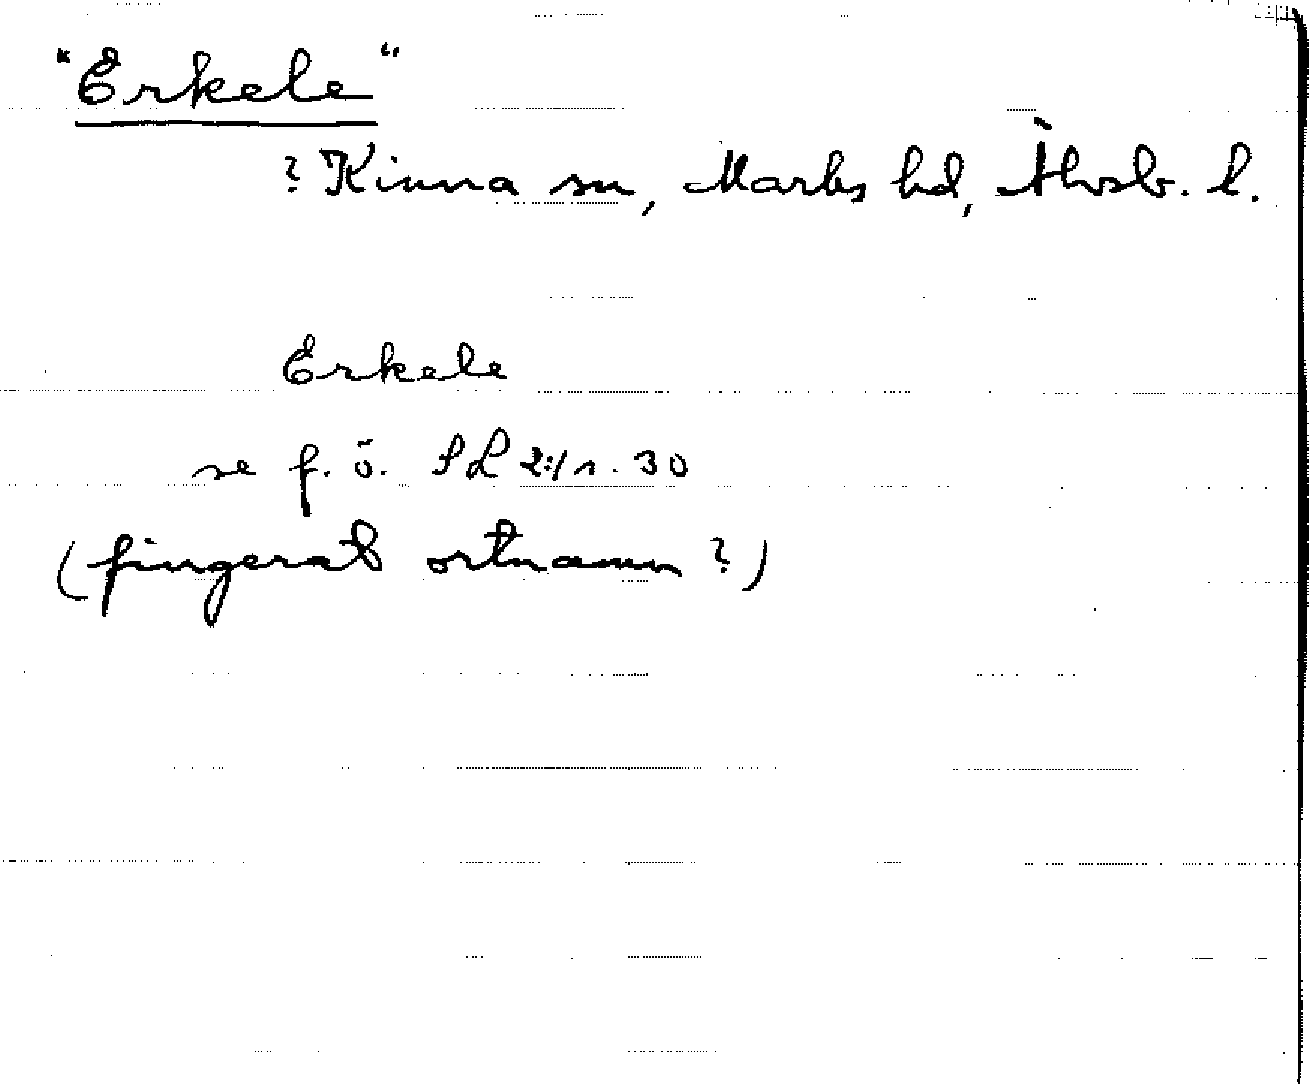 "Erkele"
? Kinna sn, Marks hd, Älvsb. l.
Erkele
se f. ö. SL 2:1 s. 30
(fingerat ortnamn ?)